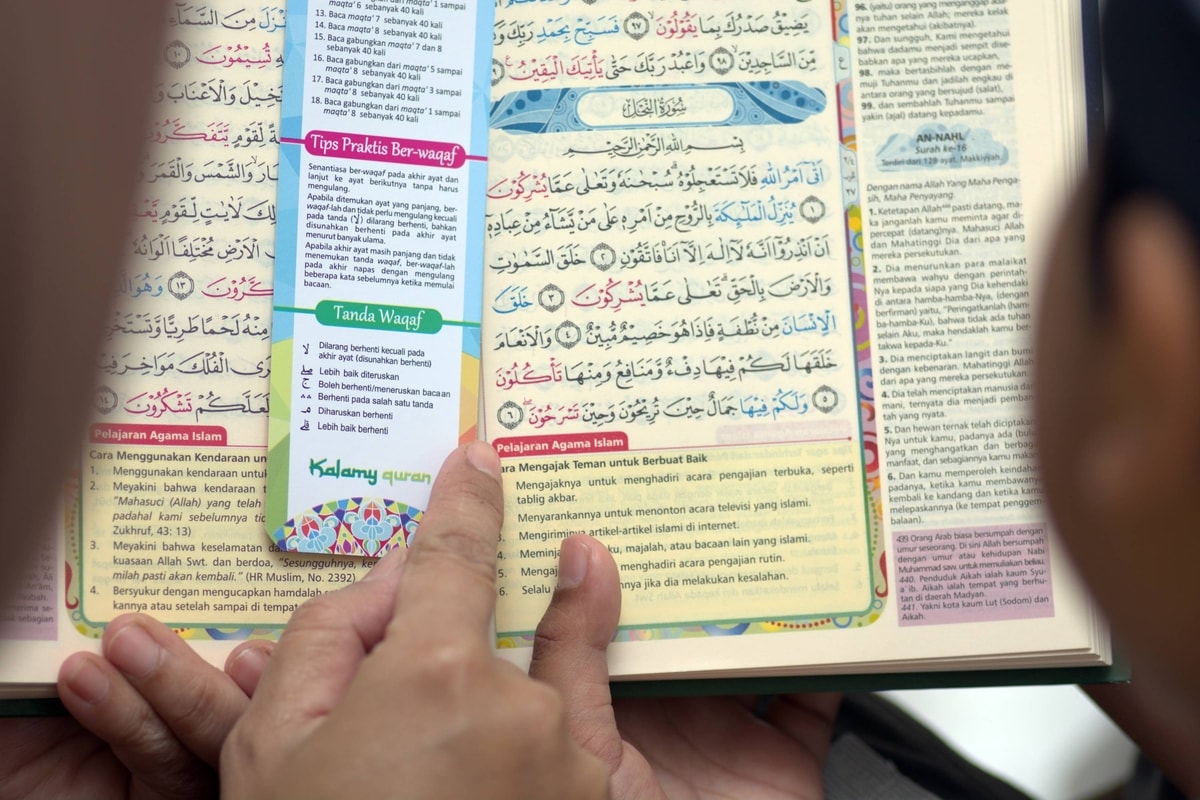 maqta' 6 sebanyak 40 kali
13. Baca maqta' 7 sebanyak 40 kali
14. Baca maqta' 8 sebanyak 40 kali
15. Baca gabungkan maqta' 7 dan 8
sebanyak 40 kali
16. Baca gabungkan dari maqta' 5 sampai
maqta' 8 sebanyak 40 kali
17. Baca gabungkan dari maqta' 3 sampai
maqta' 8 sebanyak 40 kali
18. Baca gabungkan dari maqta' 1 sampai
maqta' 8 sebanyak 40 kali
Tips Praktis Ber-waqaf
Senantiasa ber-waqaf pada akhir ayat dan
lanjut ke ayat berikutnya tanpa harus
mengulang.
Apabila ditemukan ayat yang panjang, ber-
waqaf-lah dan tidak perlu mengulang kecuali
pada tanda (لا) dilarang berhenti, bahkan
disunahkan berhenti pada akhir ayat
menurut banyak ulama.
Apabila akhir ayat masih panjang dan tidak
menemukan tanda waqaf, ber-waqaf-lah
pada akhir napas dengan mengulang
beberapa kata sebelumnya ketika memulai
bacaan.
Tanda Waqaf
لا Dilarang berhenti kecuali pada
akhir ayat (disunahkan berhenti)
صلى Lebih baik diteruskan
ج Boleh berhenti/meneruskan bacaan
Berhenti pada salah satu tanda
م Diharuskan berhenti
قلى Lebih baik berhenti
Kalamy quran
يَضِيْقُ صَدْرُكَ بِمَا يَقُوْلُوْنَ ۙ ٩٧ فَسَبِّحْ بِحَمْدِ رَبِّكَ
مِّنَ السّٰجِدِيْنَ ۙ ٩٨ وَاعْبُدْ رَبَّكَ حَتّٰى يَأْتِيَكَ الْيَقِيْنُ
سُوْرَةُ النَّحْلِ
بِسْمِ اللّٰهِ الرَّحْمٰنِ الرَّحِيْمِ
اَتٰٓى اَمْرُ اللّٰهِ فَلَا تَسْتَعْجِلُوْهُ ۗ سُبْحٰنَهٗ وَتَعٰلٰى عَمَّا يُشْرِكُوْنَ
١ يُنَزِّلُ الْمَلٰۤىِٕكَةَ بِالرُّوْحِ مِنْ اَمْرِهٖ عَلٰى مَنْ يَّشَاۤءُ مِنْ عِبَادِهٖٓ
اَنْ اَنْذِرُوْٓا اَنَّهٗ لَآ اِلٰهَ اِلَّآ اَنَا۠ فَاتَّقُوْنِ ٢ خَلَقَ السَّمٰوٰتِ
وَالْاَرْضَ بِالْحَقِّ ۗ تَعٰلٰى عَمَّا يُشْرِكُوْنَ ٣ خَلَقَ
الْاِنْسَانَ مِنْ نُّطْفَةٍ فَاِذَا هُوَ خَصِيْمٌ مُّبِيْنٌ ٤ وَالْاَنْعَامَ
خَلَقَهَا ۚ لَكُمْ فِيْهَا دِفْءٌ وَّمَنَافِعُ وَمِنْهَا تَأْكُلُوْنَ
٥ وَلَكُمْ فِيْهَا جَمَالٌ حِيْنَ تُرِيْحُوْنَ وَحِيْنَ تَسْرَحُوْنَ ۖ ٦
Pelajaran Agama Islam
Cara Mengajak Teman untuk Berbuat Baik
Mengajaknya untuk menghadiri acara pengajian terbuka, seperti
tablig akbar.
Menyarankannya untuk menonton acara televisi yang islami.
3. artikel-artikel islami di internet.
4. majalah, atau bacaan lain yang islami.
5. menghadiri acara pengajian rutin.
6. Selalu jika dia melakukan kesalahan.
96. (yaitu) orang yang menganggap ada-
nya tuhan selain Allah; mereka kelak
akan mengetahui (akibatnya).
97. Dan sungguh, Kami mengetahui
bahwa dadamu menjadi sempit dise-
babkan apa yang mereka ucapkan,
98. maka bertasbihlah dengan me-
muji Tuhanmu dan jadilah engkau di
antara orang yang bersujud (salat),
99. dan sembahlah Tuhanmu sampai
yakin (ajal) datang kepadamu.
AN-NAHL
Surah ke-16
Terdiri dari 128 ayat. Makkiyyah
Dengan nama Allah Yang Maha Penga-
sih, Maha Penyayang.
1. Ketetapan Allah pasti datang, ma-
ka janganlah kamu meminta agar di-
percepat (datang)nya. Mahasuci Allah
dan Mahatinggi Dia dari apa yang
mereka persekutukan.
2. Dia menurunkan para malaikat
membawa wahyu dengan perintah-
Nya kepada siapa yang Dia kehendaki
di antara hamba-hamba-Nya, (dengan
berfirman) yaitu, "Peringatkanlah (ham-
ba-hamba-Ku), bahwa tidak ada tuhan
selain Aku, maka hendaklah kamu ber-
takwa kepada-Ku."
3. Dia menciptakan langit dan bumi
dengan kebenaran. Mahatinggi Allah
dari apa yang mereka persekutukan.
4. Dia telah menciptakan manusia
mani, ternyata dia menjadi pemban-
tah yang nyata.
5. Dan hewan ternak telah diciptakan
Nya untuk kamu, padanya ada (bulu)
yang menghangatkan dan berbagai
manfaat, dan sebagiannya kamu makan
6. Dan kamu memperoleh keindahan
padanya, ketika kamu membawanya
kembali ke kandang dan ketika kamu
melepaskannya (ke tempat penggem-
balaan).
439 Orang Arab biasa bersumpah dengan
umur seseorang. Di sini Allah bersumpah
dengan umur atau kehidupan Nabi
Muhammad saw. untuk memuliakan beliau.
440. Penduduk Aikah ialah kaum Syu-
a'ib. Aikah ialah tempat yang berhu-
tan di daerah Madyan.
441. Yakni kota kaum Lut (Sodom) dan
Aikah.
تُسِيْمُوْنَ ١٠
لِّقَوْمٍ يَّتَفَكَّرُوْنَ
١٣ وَهُوَ
مِنْهُ لَحْمًا طَرِيًّا
لَعَلَّكُمْ تَشْكُرُوْنَ ١٤
Pelajaran Agama Islam
Cara Menggunakan Kendaraan
1. Menggunakan kendaraan
2. Meyakini bahwa kendaraan
"Mahasuci (Allah) yang telah
padahal kami sebelumnya
Zukhruf, 43: 13)
3. Meyakini bahwa keselamatan
kuasaan Allah Swt. dan berdoa, "Sesungguhnya,
milah pasti akan kembali." (HR Muslim, No. 2392)
4. Bersyukur dengan mengucapkan hamdalah
kannya atau setelah sampai di tempat